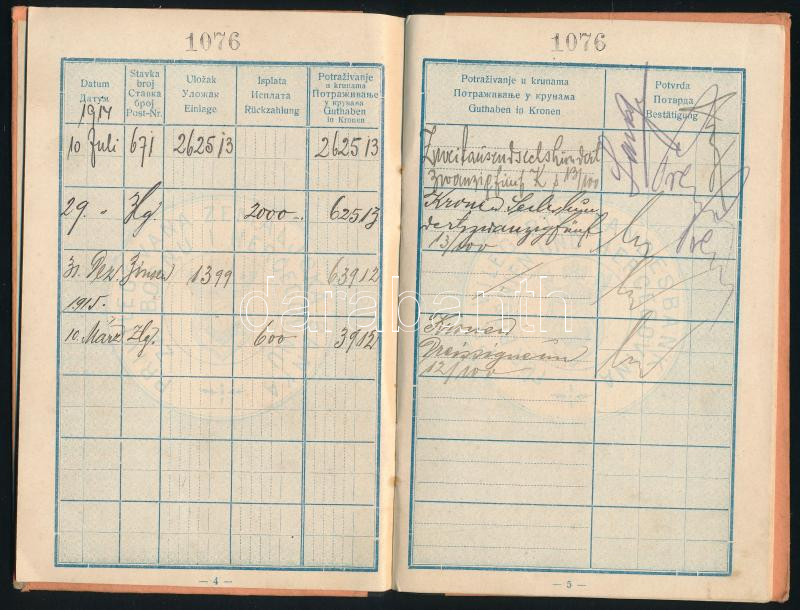 1076
Datum
Датум
1914
Stavka
broj
Ставка
број
Post-Nr.
Uložak
Уложак
Einlage
Isplata
Исплата
Rückzahlung
Potraživanje
u krunama
Потраживање
у крунама
Guthaben
in Kronen
10 Juli 671 2625 13 2625 13
29. " Hg. 2000 - 625 13
31. Dez. Zinsen 13 99 639 12
1915.
10. März Hg. 600 39 12
— 4 —
1076
Potraživanje u krunama
Потраживање у крунама
Guthaben in Kronen
Potvrda
Потврда
Bestätigung
Zweitausendsechshundert
zwanzigfünf K 13/100
Kronen Sechshun
dertzwanzigfünf
13/100
Kronen
Dreissigneun
12/100
— 5 —
darabanth